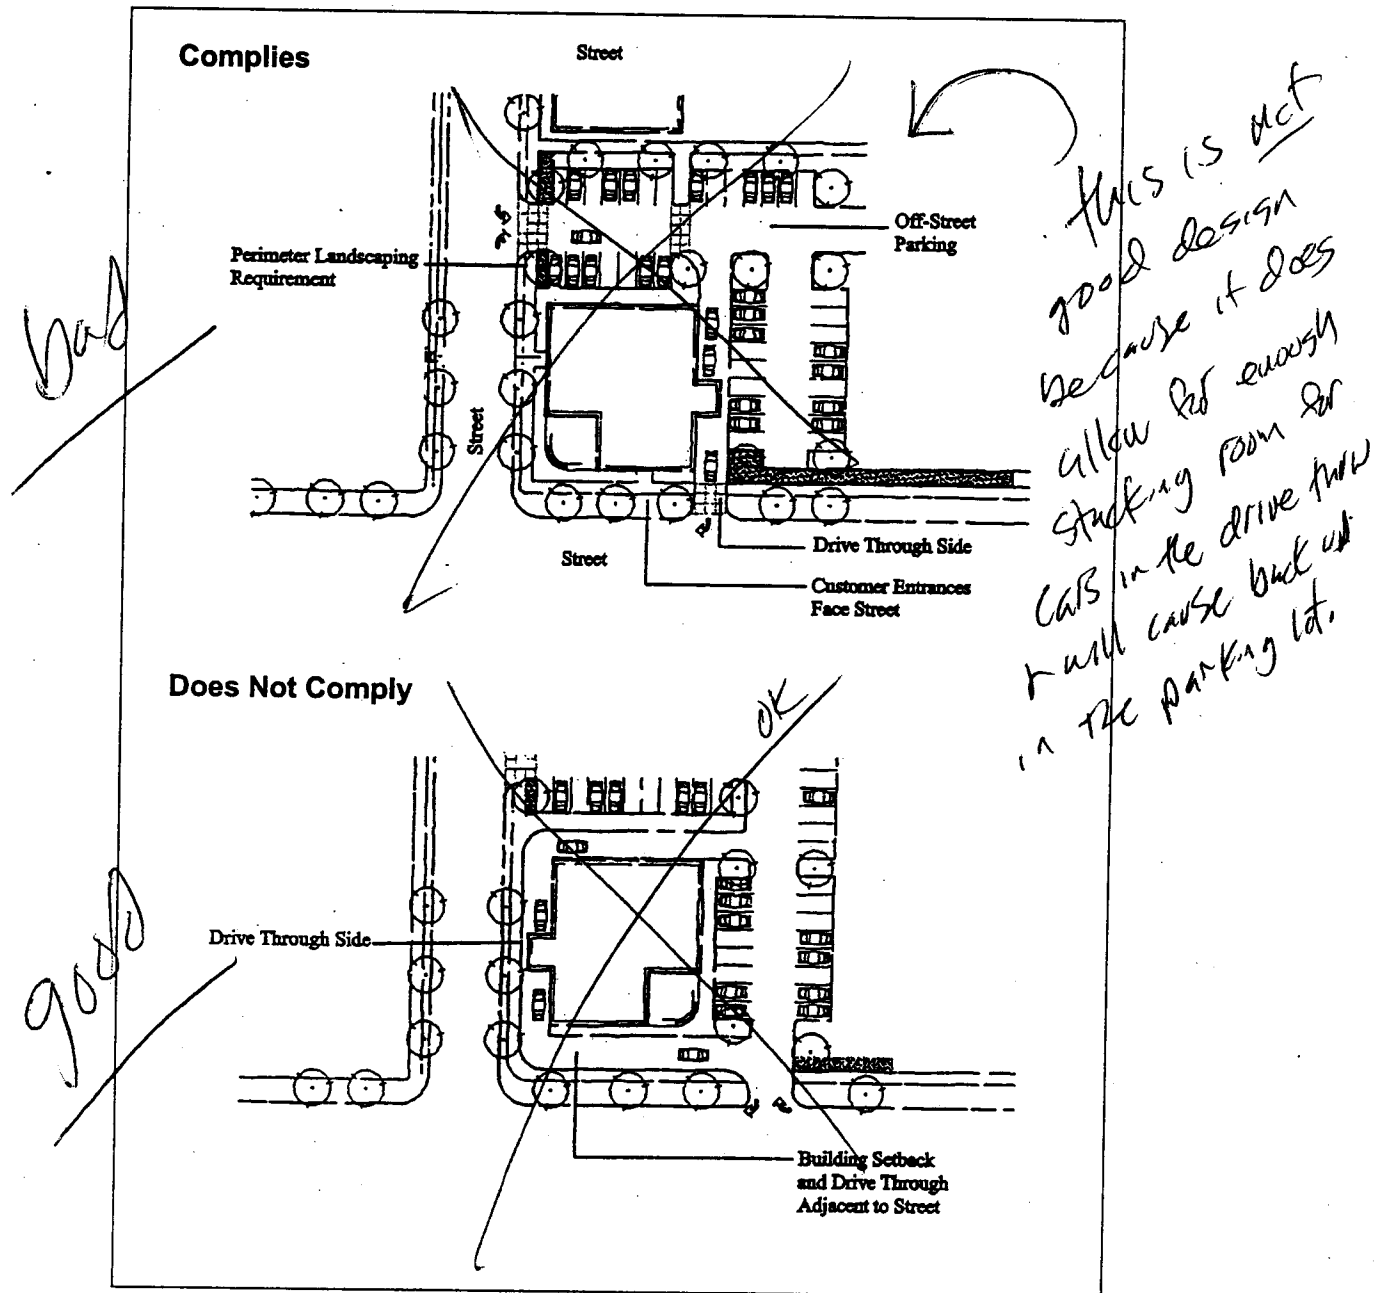 Complies
Street
Off-Street
Parking
Perimeter Landscaping
Requirement
Street
Drive Through Side
Street
Customer Entrances
Face Street
bad
this is not
good design
because it does
allow for enough
stacking room for
cars in the drive thru
& will cause back up
in the parking lot.
Does Not Comply
OK
good
Drive Through Side
Building Setback
and Drive Through
Adjacent to Street